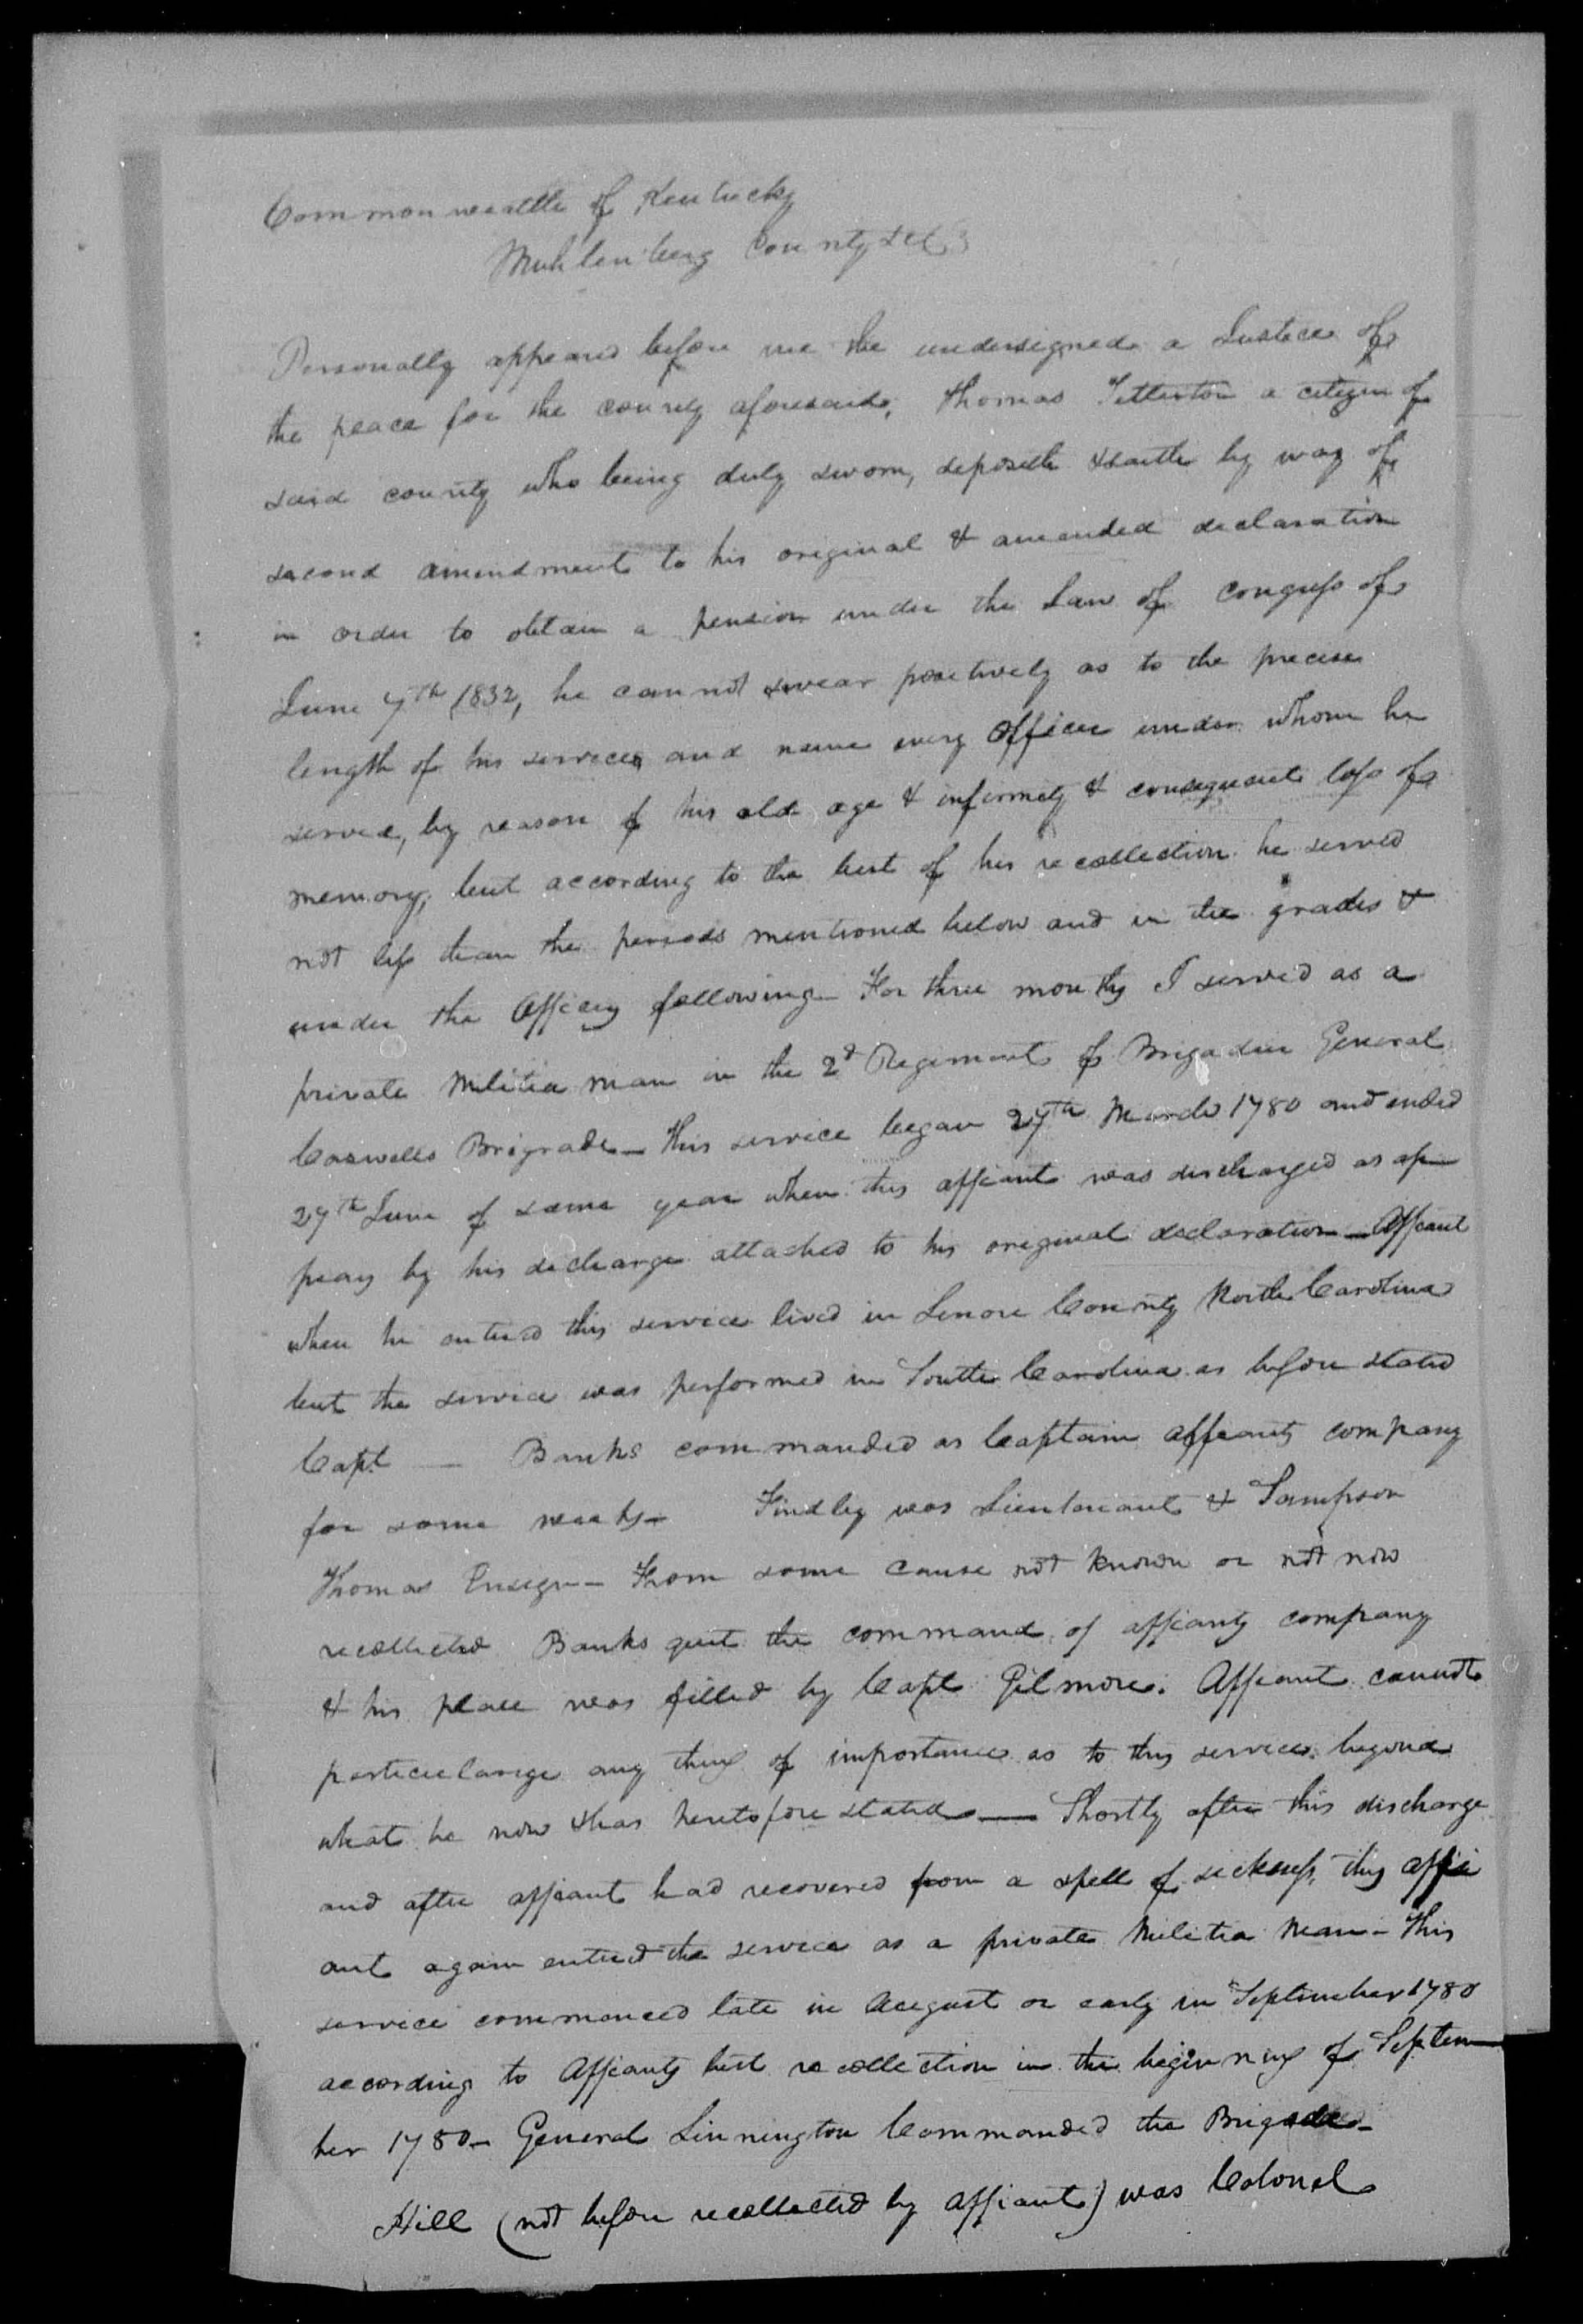 Commonwealth of Kentucky
Muhlenberg County Sct
Personally appeared before me the undersigned a Justice of
the peace for the county aforesaid, Thomas Titterton a citizen of
said county who being duly sworn, deposeth & saith by way of
second amendment to his original & amended declaration
in order to obtain a pension under the Law of Congress of
June 7th 1832, he cannot swear positively as to the precise
length of his services and name every officer under whom he
served, by reason of his old age & infirmity & consequent loss of
memory, but according to the best of his recollection he served
not less than the periods mentioned below and in the grades &
under the Officers following. For three months I served as a
private Militia man in the 2d Regiment of Brigadier General
Caswells Brigrade— This service began 27th March 1780 and ended
27th June of same year when this affiant was discharged as ap
pears by his discharge attached to his original declaration— Affiant
when he entered this service lived in Lenore County North Carolina
but the service was performed in South Carolina as before stated
Capt — Banks commanded as Captain affiants company
for some weeks— Findley was Lieutenant & Sampson
Thomas Ensign— From some cause not known or not now
recollected Banks quit the command of affiants company
& his place was filled by Capt Gilmore. Affiant cannot
particularize any thing of importance as to this service beyond
what he now & has heretofore stated — Shortly after this discharge
and after affiant had recovered from a spell of sickness, this affi
ant again entered the service as a private Militia Man— This
service commenced late in August or early in September 1780
according to Affiants best recollection in the beginning of Septem
ber 1780— General Linnington Commanded the Brigade—
Hill (not before recollected by affiant) was Colonel